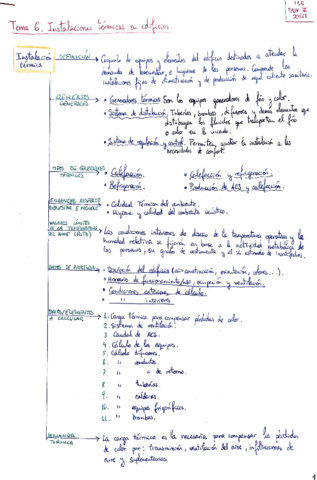 Tema 6. Instalaciones térmicas en edificios.
Instalación térmica
DEFINICIÓN → Conjunto de equipos y elementos del edificio destinados a atender la
demanda de bienestar, e higiene de las personas. Comprende las
instalaciones fijas de climatización y de producción de agua caliente sanitaria.
ELEMENTOS GENERALES → • Generadores térmicos. Son los equipos generadores de frío y calor.
• Sistema de distribución. Tuberías, bombas, difusores y demás elementos que
distribuyen los fluidos que transportan el frío
o calor en la
• Sistema de regulación y control. Permiten ajustar la instalación a las
necesidades de confort.
TIPOS DE
TÉRMICAS → • Calefacción. • Calefacción y refrigeración.
• Refrigeración. • Producción de ACS y calefacción.
→ • Calidad Térmica del ambiente.
• Higiene y calidad del ambiente acústico.
VALORES LÍMITES DE LA TEMPERATURA
DE AIRE → • Las condiciones interiores de diseño de la temperatura operativa y la
humedad relativa se fijarán en base a la actividad metabólica de
las personas, su grado de vestimenta y el % estimado de insatisfechos.
DATOS DE PARTIDA → • Descripción del edificio (construcción, orientación, ...).
• Horarios de funcionamiento, ocupación y ventilación.
• Condiciones exteriores de cálculo.
• " interiores
A CALCULAR → 1. Carga térmica para compensar pérdidas de calor.
2. Sistema de ventilación.
3. Caudal de ACS.
4. Cálculo de los equipos.
5. Cálculo difusores.
6. " conductos.
7. " " de retorno.
8. " tuberías.
9. " calderas.
10. " equipos frigoríficos.
11. " bombas.
DEMANDA TÉRMICA → La carga térmica es la necesaria para compensar las pérdidas
de calor por: transmisión, ventilación del aire, infiltraciones de
aire y suplementarias.
1